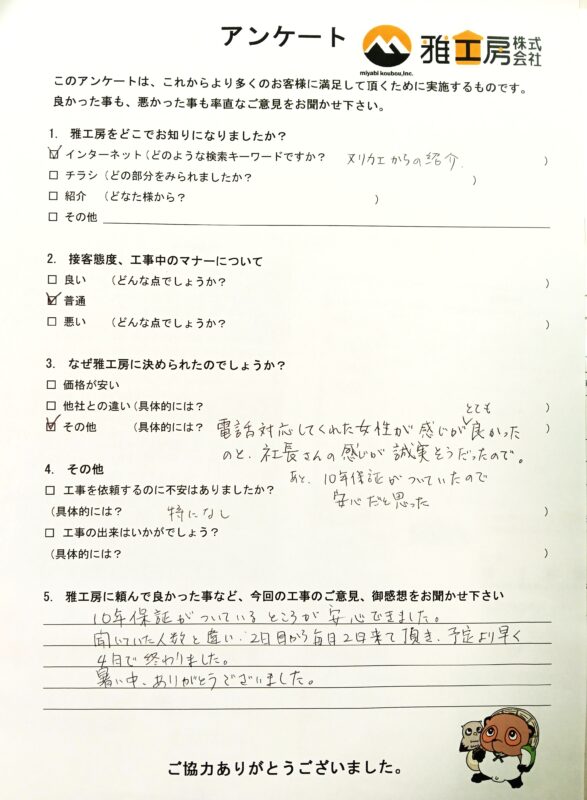 アンケート
雅工房株式会社
miyabi koubou,Inc.
このアンケートは、これからより多くのお客様に満足して頂くために実施するものです。
良かった事も、悪かった事も率直なご意見をお聞かせ下さい。
1. 雅工房をどこでお知りになりましたか？
☑ インターネット（どのような検索キーワードですか？ ヌリカエからの紹介. ）
□ チラシ（どの部分をみられましたか？ ）
□ 紹介 （どなた様から？ ）
□ その他
2. 接客態度、工事中のマナーについて
□ 良い （どんな点でしょうか？ ）
☑ 普通
□ 悪い （どんな点でしょうか？ ）
3. なぜ雅工房に決められたのでしょうか？
□ 価格が安い
□ 他社との違い（具体的には？ ）
☑ その他 （具体的には？ 電話対応してくれた女性が感じがとても良かった
のと、社長さんの感じが誠実そうだったので。
あと、10年保証がついていたので
安心だと思った
4. その他
□ 工事を依頼するのに不安はありましたか？
（具体的には？ 特になし ）
□ 工事の出来はいかがでしょう？
（具体的には？ ）
5. 雅工房に頼んで良かった事など、今回の工事のご意見、御感想をお聞かせ下さい
10年保証がついているところが安心できました。
聞いていた人数と違い、2日目から毎日2日来て頂き、予定より早く
4日で終わりました。
暑い中、ありがとうございました。
ご協力ありがとうございました。